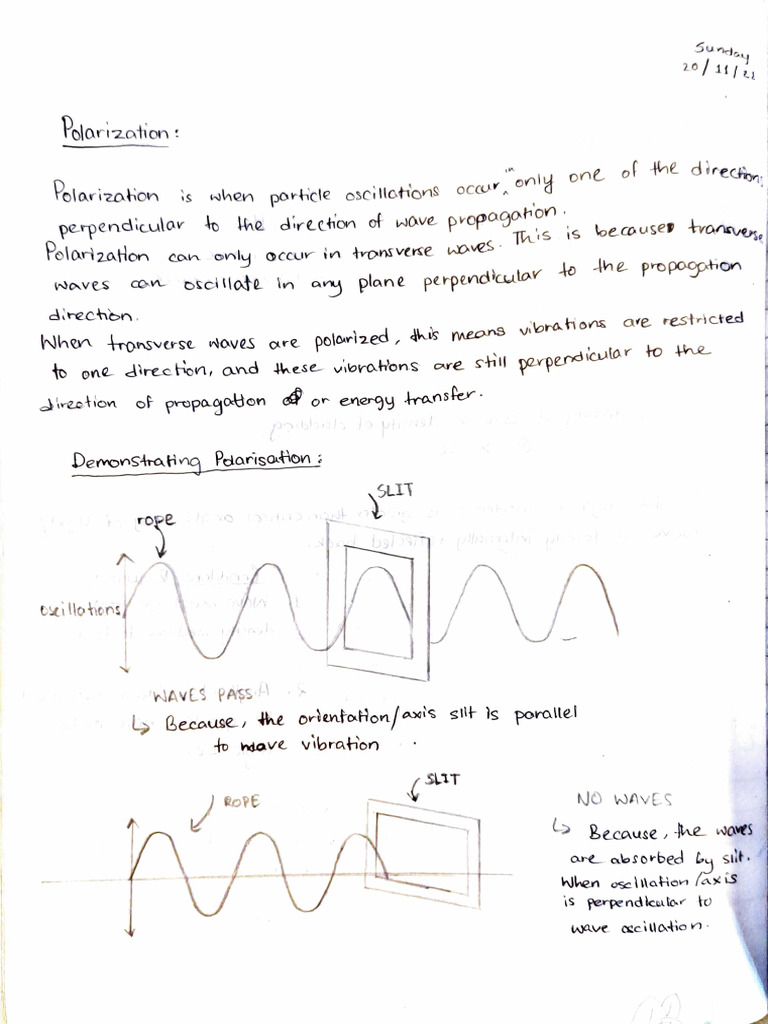 Sunday
20/11/22
Polarization:
Polarization is when particle oscillations occur in only one of the direction
perpendicular to the direction of wave propagation.
Polarization can only occur in transverse waves. This is because transverse
waves can oscillate in any plane perpendicular to the propagation
direction.
When transverse waves are polarized, this means vibrations are restricted
to one direction, and these vibrations are still perpendicular to the
direction of propagation or energy transfer.
Demonstrating Polarisation:
SLIT
rope
oscillations
WAVES PASS
↳ Because, the orientation/axis slit is parallel
to wave vibration
SLIT
ROPE
NO WAVES
↳ Because, the waves
are absorbed by slit.
When oscillation/axis
is perpendicular to
wave oscillation.